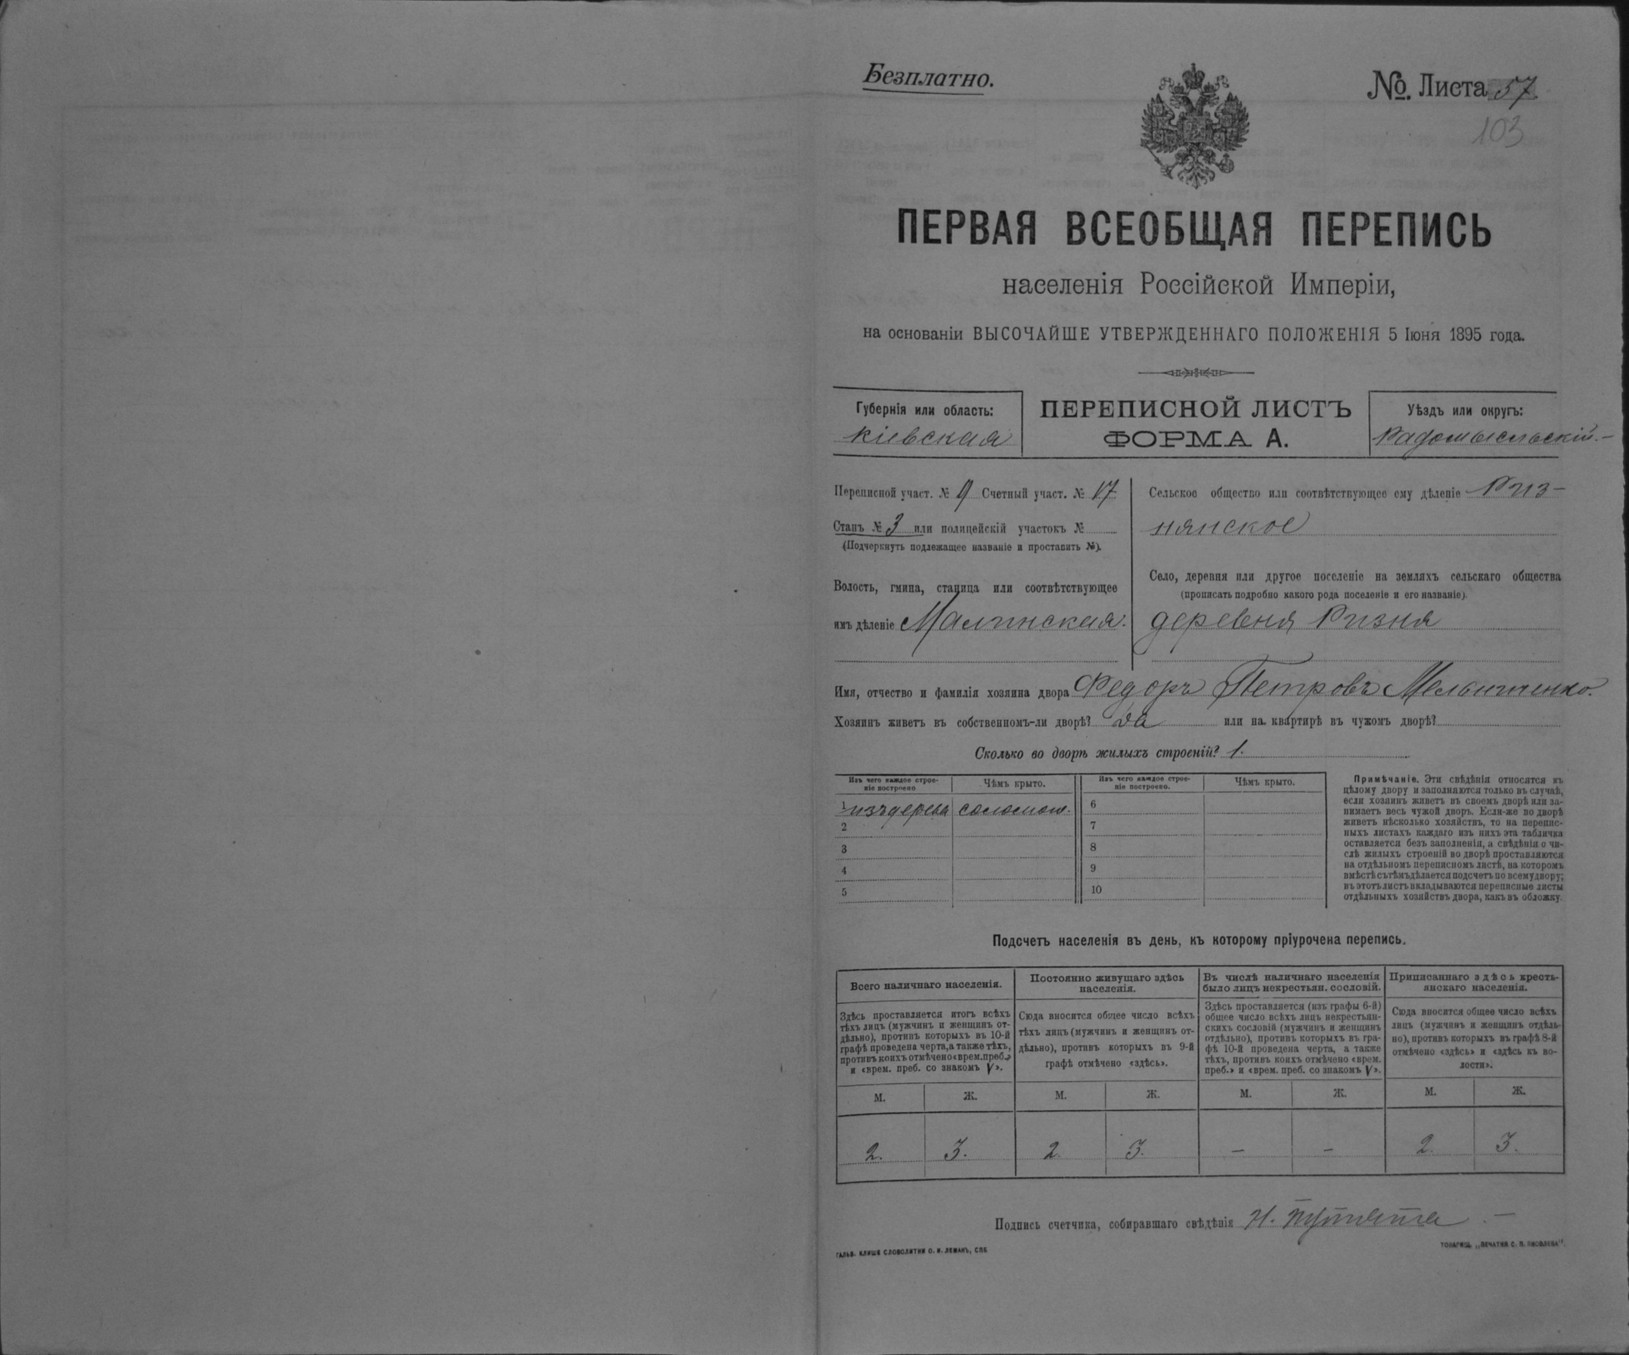 Безплатно.
№. Листа 57
103
ПЕРВАЯ ВСЕОБЩАЯ ПЕРЕПИСЬ
населенія Россійской Имперіи,
на основаніи ВЫСОЧАЙШЕ УТВЕРЖДЕННАГО ПОЛОЖЕНІЯ 5 Іюня 1895 года.
Губернія или область:
Кіевская
ПЕРЕПИСНОЙ ЛИСТЪ
ФОРМА А.
Уѣздъ или округъ:
Радомысльскій.
Переписной участ. № 9 Счетный участ. № 17
Станъ № 3 или полицейскій участокъ №
(Подчеркнуть подлежащее названіе и проставить №).
Волость, гмина, станица или соотвѣтствующее
имъ дѣленіе Малинская.
Сельское общество или соотвѣтствующее ему дѣленіе Риз-
нянское
Село, деревня или другое поселеніе на земляхъ сельскаго общества
(прописать подробно какого рода поселеніе и его названіе).
деревня Ризня
Имя, отчество и фамилія хозяина двора Федоръ Петровъ Мельниченко.
Хозяинъ живетъ въ собственномъ-ли дворѣ? да или на квартирѣ въ чужомъ дворѣ?
Сколько во дворѣ жилыхъ строеній? 1.
Изъ чего каждое строе-
ніе построено
Чѣмъ крыто.
Изъ чего каждое строе-
ніе построено.
Чѣмъ крыто.
1 изъ дерева соломою.
2
3
4
5
6
7
8
9
10
Примѣчаніе. Эти свѣдѣнія относятся къ
цѣлому двору и заполняются только въ случаѣ,
если хозяинъ живетъ въ своемъ дворѣ или за-
нимаетъ весь чужой дворъ. Если-же во дворѣ
живетъ нѣсколько хозяйствъ, то на перепис-
ныхъ листахъ каждаго изъ нихъ эта табличка
оставляется безъ заполненія, а свѣдѣнія о чи-
слѣ жилыхъ строеній во дворѣ проставляются
на отдѣльномъ переписномъ листѣ, на которомъ
вмѣстѣ съ тѣмъ дѣлается подсчетъ по всему двору;
въ этотъ листъ вкладываются переписные листы
отдѣльныхъ хозяйствъ двора, какъ въ обложку.
Подсчетъ населенія въ день, къ которому пріурочена перепись.
Всего наличнаго населенія.
Здѣсь проставляется итогъ всѣхъ
тѣхъ лицъ (мужчинъ и женщинъ от-
дѣльно), противъ которыхъ въ 10-й
графѣ проведена черта, а также тѣхъ,
противъ коихъ отмѣчено «врем. преб.»
и «врем. преб. со знакомъ V».
Постоянно живущаго здѣсь
населенія.
Сюда вносится общее число всѣхъ
тѣхъ лицъ (мужчинъ и женщинъ от-
дѣльно), противъ которыхъ въ 9-й
графѣ отмѣчено «здѣсь».
Въ числѣ наличнаго населенія
было лицъ некрестьян. сословій.
Здѣсь проставляется (изъ графы 6-й)
общее число всѣхъ лицъ некрестьян-
скихъ сословій (мужчинъ и женщинъ
отдѣльно), противъ которыхъ въ гра-
фѣ 10-й проведена черта, а также
тѣхъ, противъ коихъ отмѣчено «врем.
преб.» и «врем. преб. со знакомъ V».
Приписаннаго здѣсь кресть-
янскаго населенія.
Сюда вносится общее число всѣхъ
лицъ (мужчинъ и женщинъ отдѣль-
но), противъ которыхъ въ графѣ 8-й
отмѣчено «здѣсь» и «здѣсь къ во-
лости».
М. Ж. М. Ж. М. Ж. М. Ж.
2. 3. 2 3. – – 2 3.
Подпись счетчика, собиравшаго свѣдѣнія Н. Путята
ГАЛЬВ. КЛИШЕ СЛОВОЛИТНИ О. И. ЛЕМАНЪ, СПБ.
ТОВАРИЩ. „ПЕЧАТНЯ С. П. ЯКОВЛЕВА".